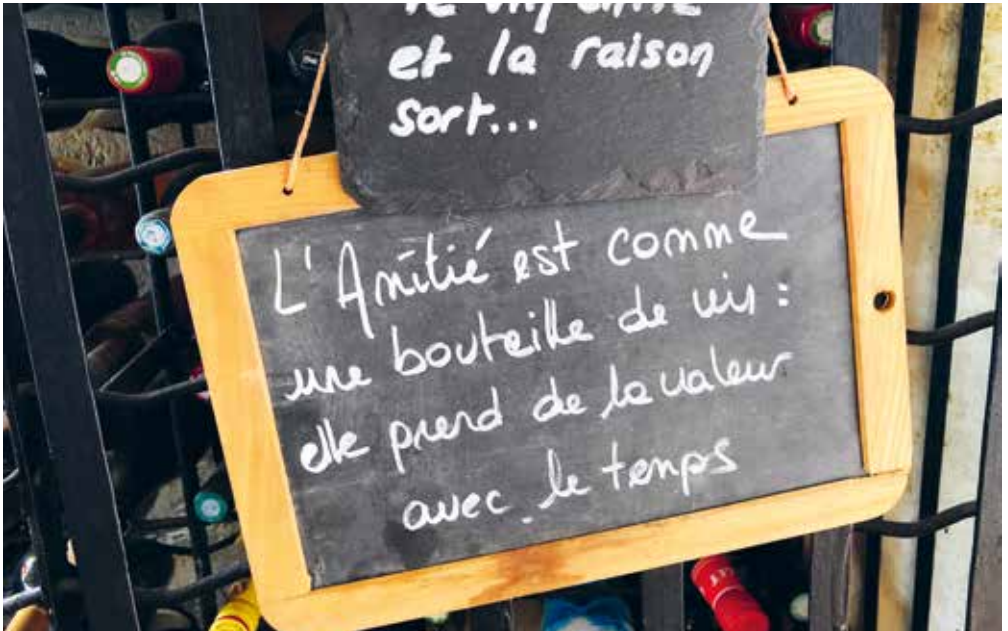 et la raison
sort...
L'Amitié est comme
une bouteille de vin :
elle prend de la valeur
avec le temps